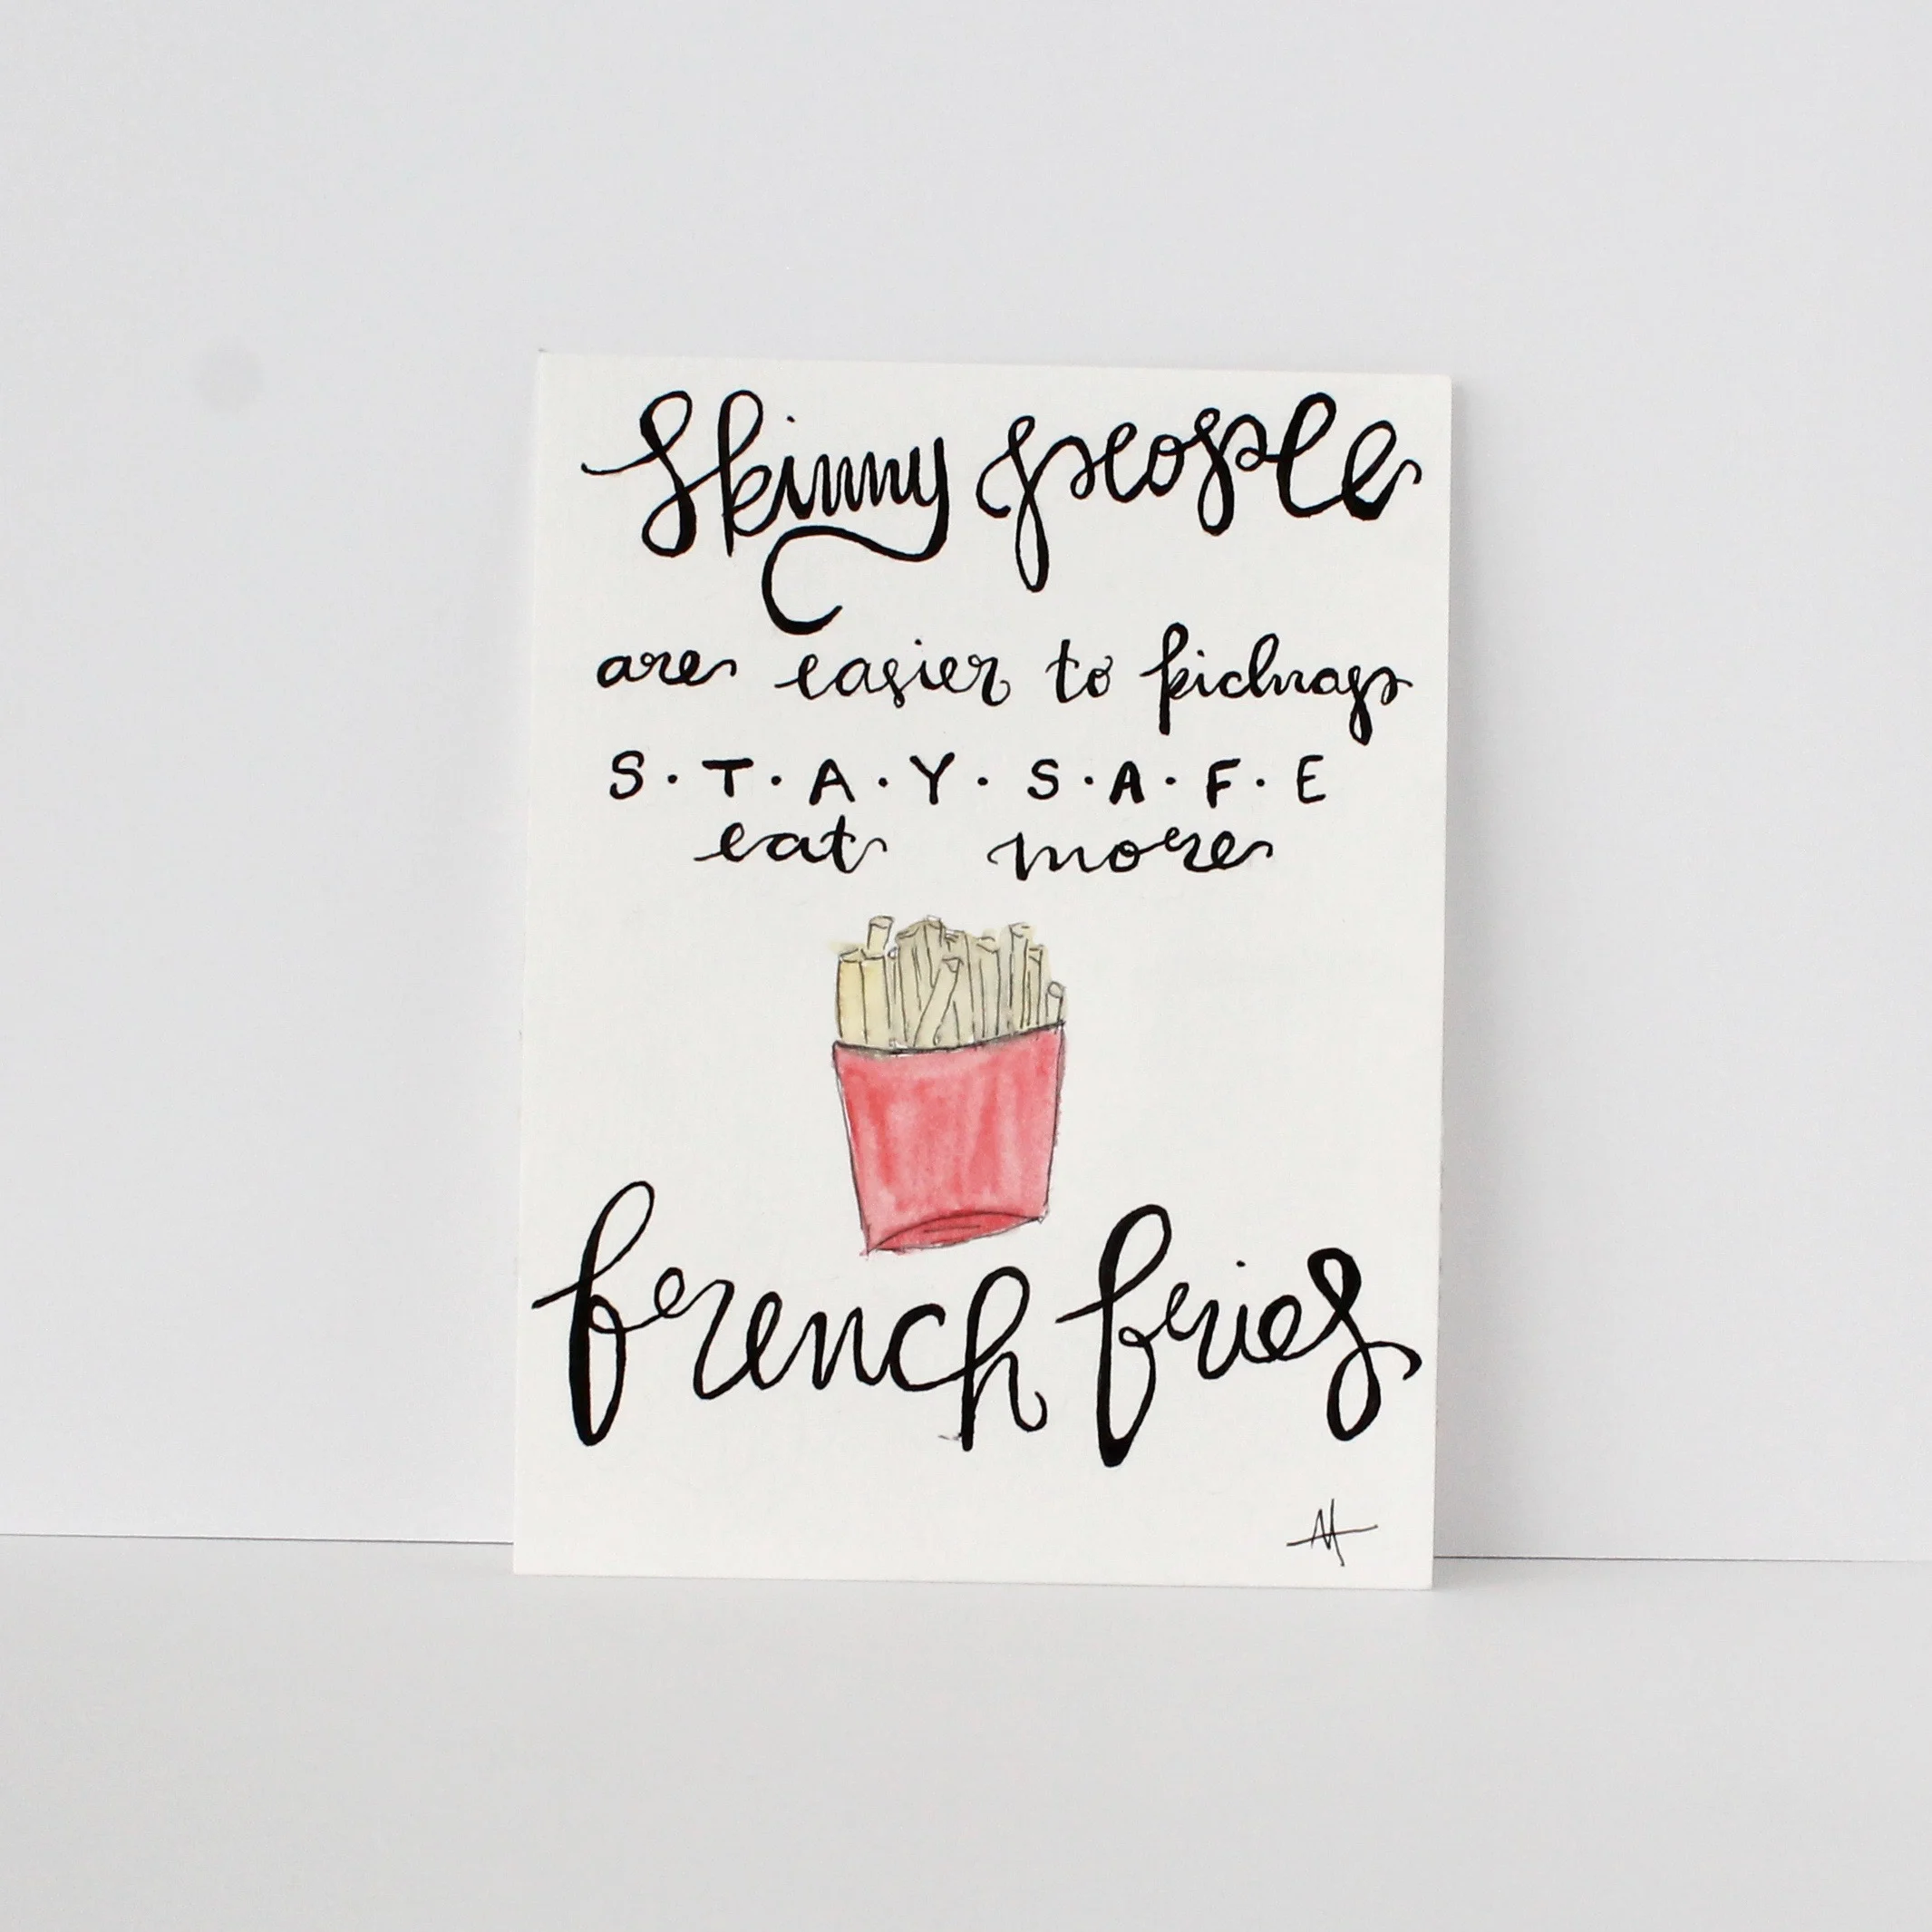 Skinny people
are easier to kidnap
S·T·A·Y·S·A·F·E
eat more
french fries